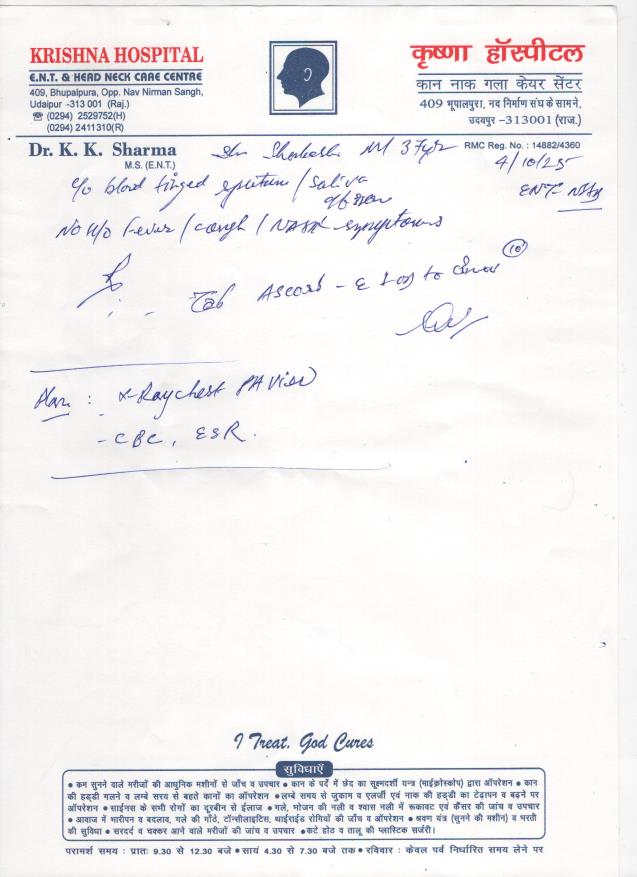 KRISHNA HOSPITAL
E.N.T. & HEAD NECK CARE CENTRE
409, Bhupalpura, Opp. Nav Nirman Sangh,
Udaipur -313 001 (Raj.)
☎ (0294) 2529752(H)
(0294) 2411310(R)
कृष्णा हॉस्पीटल
कान नाक गला केयर सेंटर
409 भूपालपुरा, नव निर्माण संघ के सामने,
उदयपुर -313001 (राज.)
Dr. K. K. Sharma
M.S. (E.N.T.)
RMC Reg. No. : 14882/4360
4/10/25
c/o blood tinged sputum / Saliva
ENT- NAD
No H/o Fever / cough / NASAL symptoms
Rx
Tab Ascorb - C 10
Plan : X-Ray chest PA View
- CBC, ESR.
I Treat. God Cures
सुविधाएँ
● कम सुनने वाले मरीजों की आधुनिक मशीनों से जाँच व उपचार ● कान के पर्दे में छेद का सूक्ष्मदर्शी यन्त्र (माईक्रोस्कोप) द्वारा ऑपरेशन ● कान
की हड्डी गलने व लम्बे समय से बहते कानों का ऑपरेशन ● लम्बे समय से जुकाम व एलर्जी एवं नाक की हड्डी का टेढ़ापन व बढ़ने पर
ऑपरेशन ● साईनस के सभी रोगों का दूरबीन से ईलाज ● गले, भोजन की नली व श्वास नली में रूकावट एवं कैंसर की जांच व उपचार
● आवाज में भारीपन व बदलाव, गले की गाँठे, टॉन्सीलाइटिस, थाईराईड रोगियों की जाँच व ऑपरेशन ● श्रवण यंत्र (सुनने की मशीन) व भरती
की सुविधा ● सरदर्द व चक्कर आने वाले मरीजों की जांच व उपचार ● कटे होठ व तालू की प्लास्टिक सर्जरी।
परामर्श समय : प्रातः 9.30 से 12.30 बजे ● सायं 4.30 से 7.30 बजे तक ● रविवार : केवल पर्व निर्धारित समय लेने पर